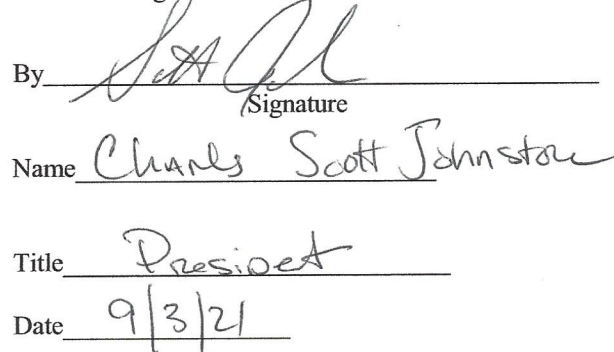 By Scott Joh
Signature
Name Charles Scott Johnstone
Title President
Date 9/3/21